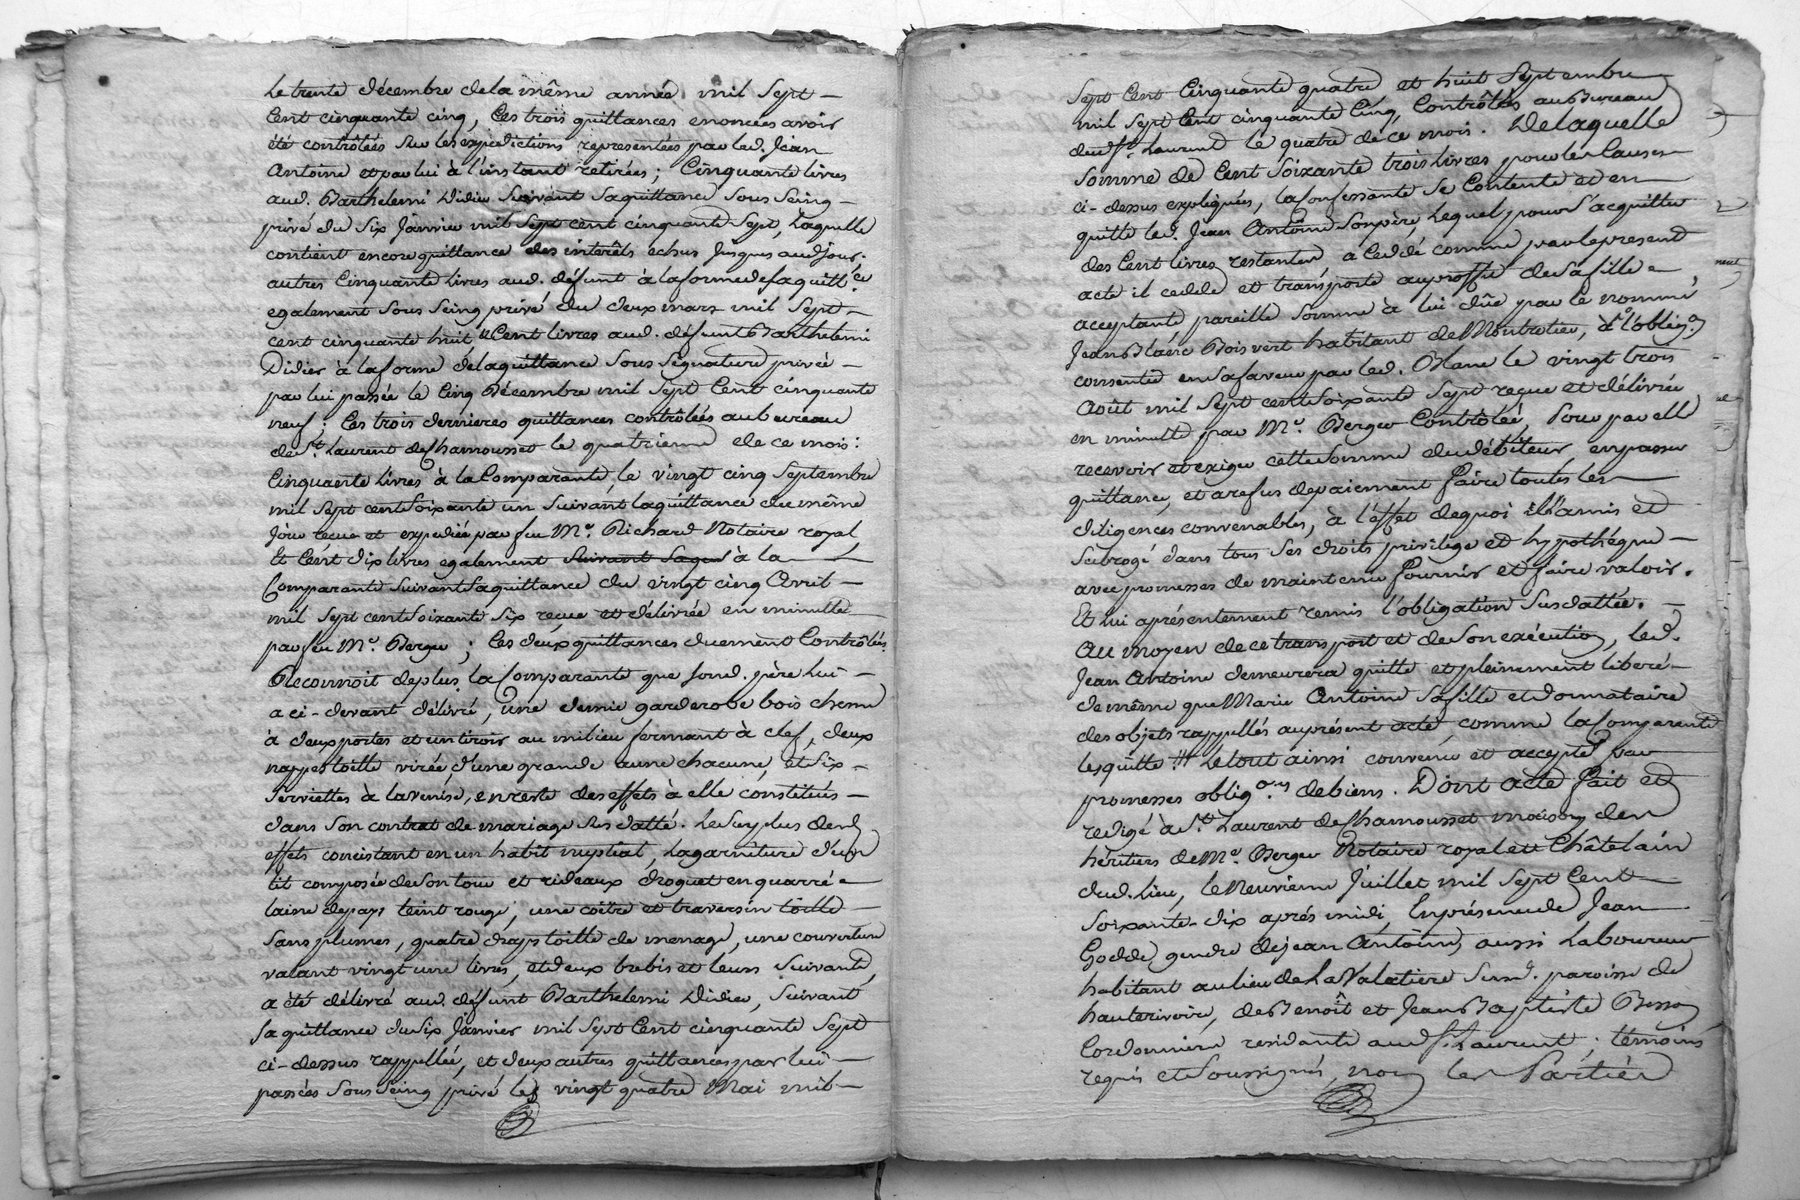 Le trente décembre de la même année mil Sept
Cent cinquante cinq, Ces trois quittances enoncées avoir
été contrôlées sur les expedictions representées par led. Jean
Antoine et par lui à l'instant retirées; Cinquante livres
aud. Barthelemi Didier Suivant Sa quittance Sous Seing
privé du Six Janvier mil Sept cent cinquante Sept, Laquelle
contient encore quittance des interêts echus Jusques aud. jour;
autres Cinquante Livres aud. défunt à la forme de sa quitt.ce
egalement Sous Seing privé du deux mars mil Sept
cent cinquante huit, Cent livres aud. défunt Barthelemi
Didier à la forme de la quittance Sous Signature privée
par lui passée le Cinq Décembre mil Sept Cent cinquante
neuf; Ces trois dernieres quittances contrôlées au bureau
de St. Laurent de Chamousset le quatrieme de ce mois:
Cinquante Livres à la Comparante, le vingt cinq Septembre
mil Sept cent Soixante un Suivant la quittance du même
Jour recue et expediée par feu Me. Richard Notaire royal
Et Cent dix livres egalement Suivant Sa qu à la
Comparante Suivant Sa quittance du vingt cinq Avril
mil Sept cent Soixante Six reçue et délivrée en minutte
par feu Me. Berger; Ces deux quittances duement Contrôlées.
Reconnoit de plus la Comparante que Sond. père Lui
a ci-devant délivré, une demie garderobe bois chene
à deux portes et un tiroir au milieu fermant à clef, deux
nappes toille virée, d'une grande aune chacune, et Six
Serviettes à la venise, en reste des effets à elle constitués
dans Son contrat de mariage Sus datté. Le Surplus desd.
effets consistant en un habit nuptial, La garniture d'un
lit composée de Son tour et rideaux droguet en quarré
laine de pays teint rouge, une coëtre et traversin toille
Sans plumes, quatre draps toille de menage, une couverture
valant vingt une livres, et deux brebis et leurs Suivants,
a été délivré aud. défunt Barthelemi Didier, Suivant
Sa quittance du Six Janvier mil Sept Cent cinquante Sept
ci-dessus rappellée, et deux autres quittances par lui
passées Sous Seing privé les vingt quatre Mai mil
Sept Cent Cinquante quatre et huit Septembre
mil Sept Cent cinquante Cinq, Contrôlés au Bureau
dud. St. Laurent le quatre de ce mois. De laquelle
Somme de Cent Soixante trois Livres pour les Causes
ci-dessus expliquées, la Confessante Se Contente et en
quitte led. Jean Antoine Son père, Lequel pour S'acquitter
des Cent livres restantes a Ceddé comme par le present
acte il cedde et transporte au proffit de Sa fille
acceptante pareille Somme à lui dûe par le nommé
Jean Blanc Boisvert habitant de Montrotier, d'obligon.
consentie en Sa faveur par led. Blanc le vingt trois
Août mil Sept cent Soixante Sept reçue et délivrée
en minutte par Me. Berger Contrôlée, Pour par elle
recevoir et exiger cette Somme du débiteur, en passer
quittance, et a refus de paiement faire toutes les
diligences convenables, à l'effet de quoi il l'a mis et
Subrogé dans tous Ses droits privilege et hypothéque
avec promesses de maintenir fournir et faire valoir.
Et lui a présentement remis l'obligation Susdattée.
Au moyen de ce transport et de Son exécution, led.
Jean Antoine demeurera quitte et pleinement liberé
de même que Marie Antoine Sa fille et donnataire
des objets rappellés au présent acte, comme la Comparante
les quitte. Le tout ainsi convenu et accepté par
promesses obligons. de biens. Dont acte fait et
redigé à St. Laurent de Chamousset maison des
héritiers de Me. Berger Notaire royal et Châtelain
dud. lieu, le Neuvieme Juillet mil Sept Cent
Soixante-dix aprés midi, En présence de Jean
Godde gendre de Jean Antoine, aussi Laboureur
habitant au lieu de La Valatiere Susd. paroisse de
hauterivoire, de Benoît et Jean Baptiste Besson
Cordonniers residants aud. St. Laurent; témoins
requis et Soussignés, non les Parties